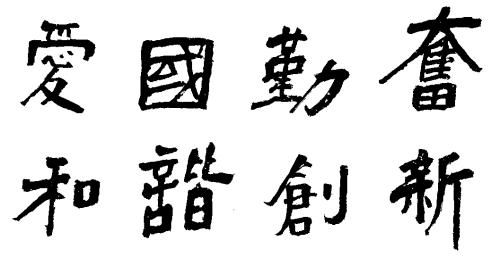 愛國勤奮
和諧創新